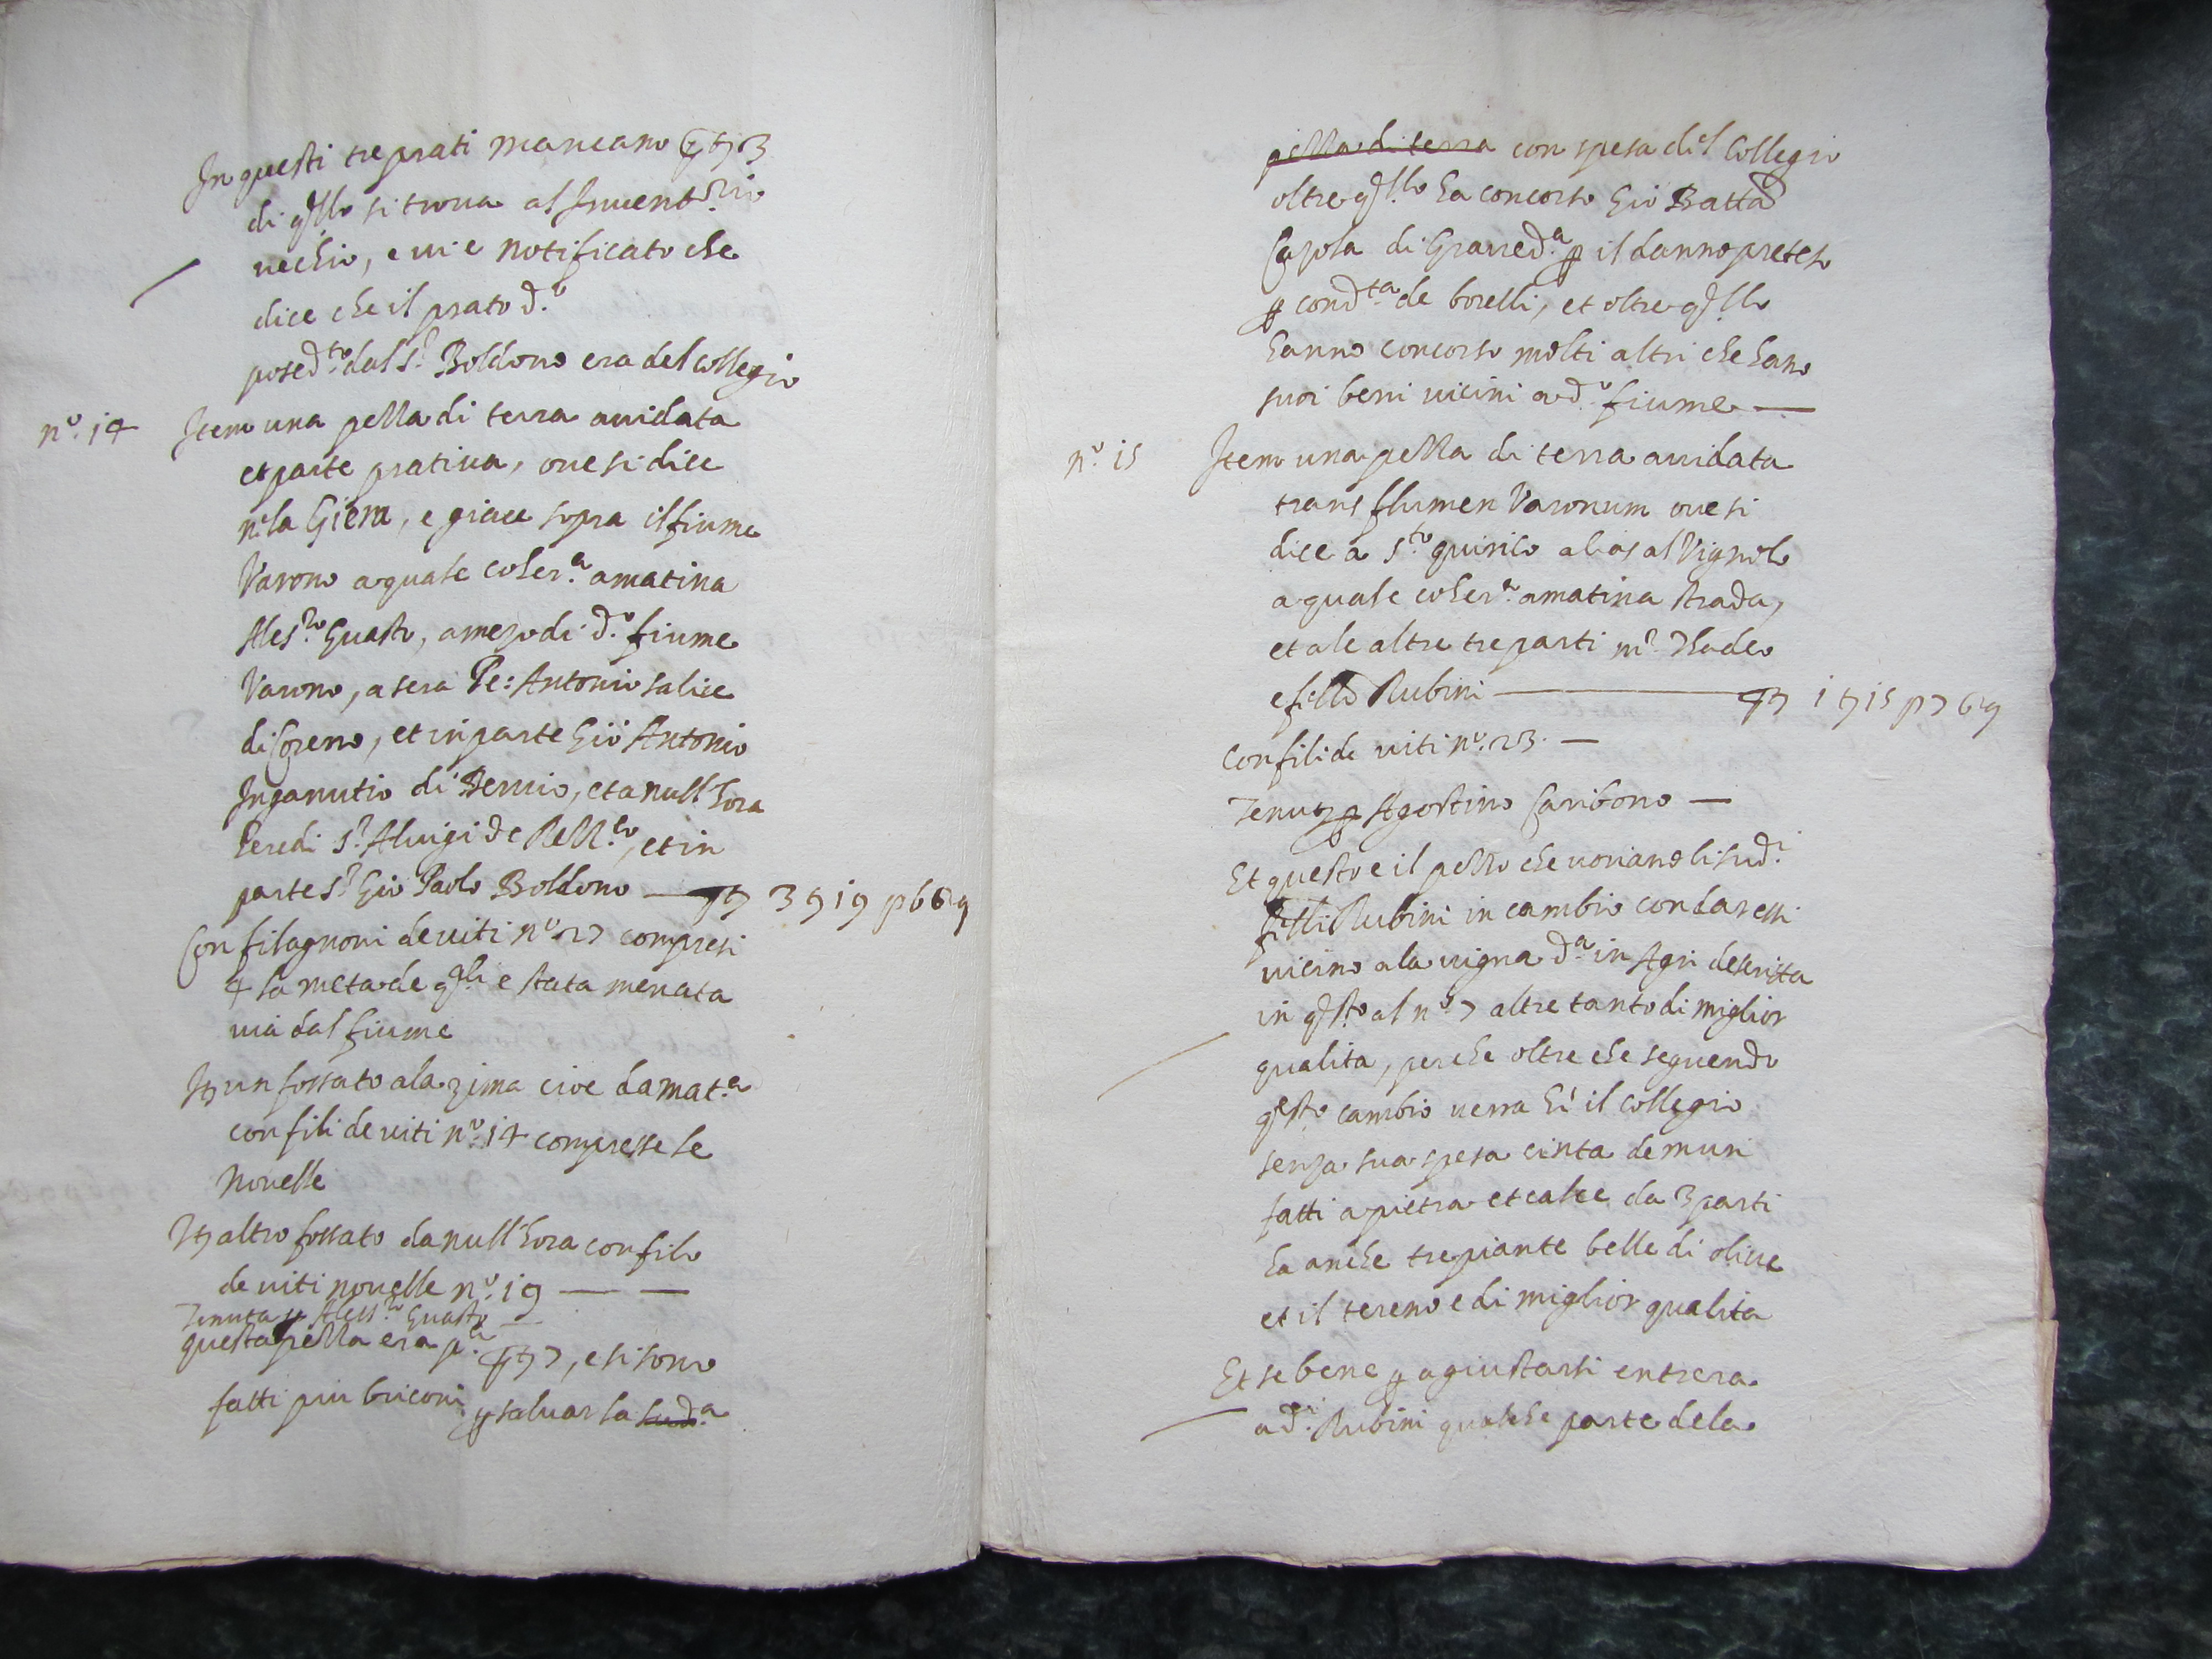 In questi tre prati mancano 3
di q.llo si trova al Invent.rio
vechio, e vi e notificato che
dice che il prato d.o
posed.to dal S.r Boldono era del Collegio
n.o 14 Item una pezza di terra avidata
et parte prativa, ove si dice
ne la Giera, e giace sopra il fiume
Varono a quale coher.a a matina
Aless.ro Guasto, a mezo di d.o fiume
Varono, a sera Pe: Antonio salice
di Coreno, et in parte Gio Antonio
Inganutio di Dervio, et a null'hora
heredi S.r Aluigi de Bell.o, et in
parte S.r Gio Paolo Boldono — 3 19 p 6
Con filagnoni de viti n.o 27 compresi
4 la meta de q.li e stata menata
via dal fiume
It un fossato a la zima cioe da mat.a
con fili de viti n.o 14 compresse le
Novelle
It altro fossato da null'hora con filo
de viti novelle n.o 19 — —
Tenuta p Aless.ro Guasto —
questa pezza era p.a 7, e si sono
fatti piu briconi p salvar la sud.a
pezza di terra con spesa del Collegio
oltre q.llo ha concorso Gio Batta
Cazola di Graved.a p il danno preteso
p cond.ta de borelli, et oltre q.llo
hanno concorso molti altri che hano
suoi beni vicini a d.o fiume —
n.o 15 Item una pezza di terra avidata
trans flumen Varonum ove si
dice a S.to quirico alias al Vignolo
a quale coher.a a matina strada,
et ale altre tre parti m.r Thadeo
e f.llo Rubini — 1 15 p 7
Con fili de viti n.o 23 —
Tenuta p Agostino Caribono —
Et questo e il pezzo che voriano li sud.i
f.lli Rubini in cambio con dar essi
vicino a la vigna d.a in Agri descritta
in q.sto al n.o 7 altre tanto di miglior
qualita, perche oltre che seguendo
q.sto cambio verra li il collegio
senza sua spesa cinta de muri
fatti a pietra et calce da 3 parti
ha anche tre piante belle di olive
et il tereno e di miglior qualita
Et se bene p agiustarsi entrera
a d.i Rubini qualche parte dela